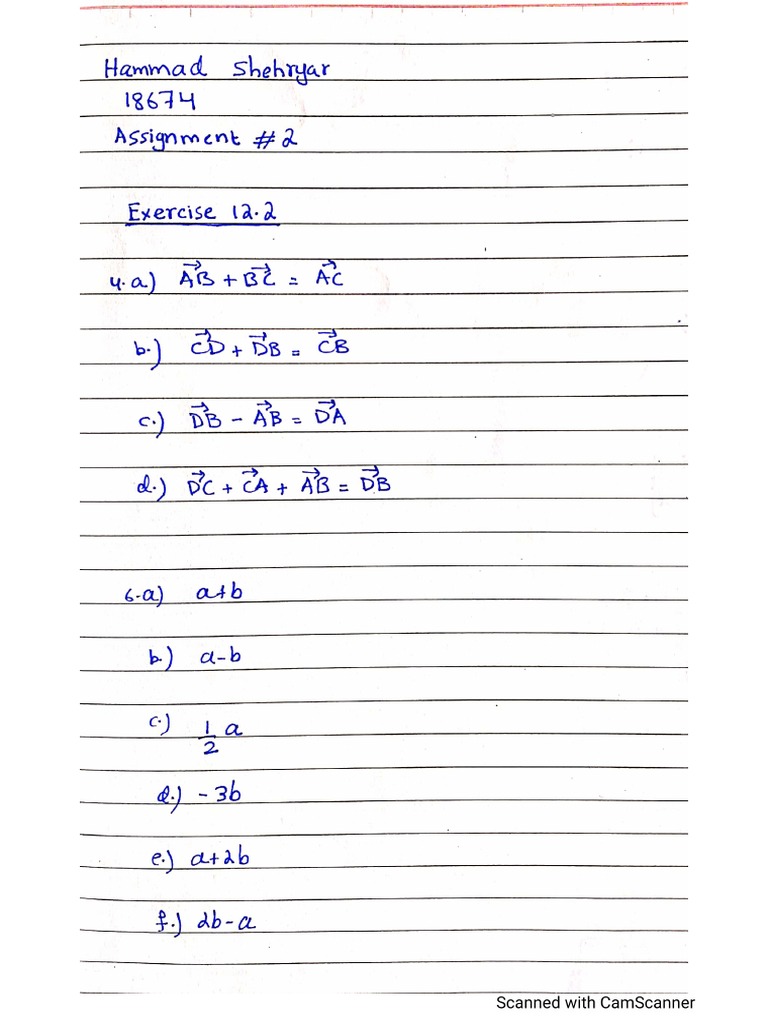 Hammad Shehryar
18674
Assignment #2
Exercise 12.2
4.a) A⃗B + B⃗C = A⃗C
b.) C⃗D + D⃗B = C⃗B
c.) D⃗B - A⃗B = D⃗A
d.) D⃗C + C⃗A + A⃗B = D⃗B
6.a) a+b
b.) a-b
c.) 1/2 a
d.) -3b
e.) a+2b
f.) 2b-a
Scanned with CamScanner